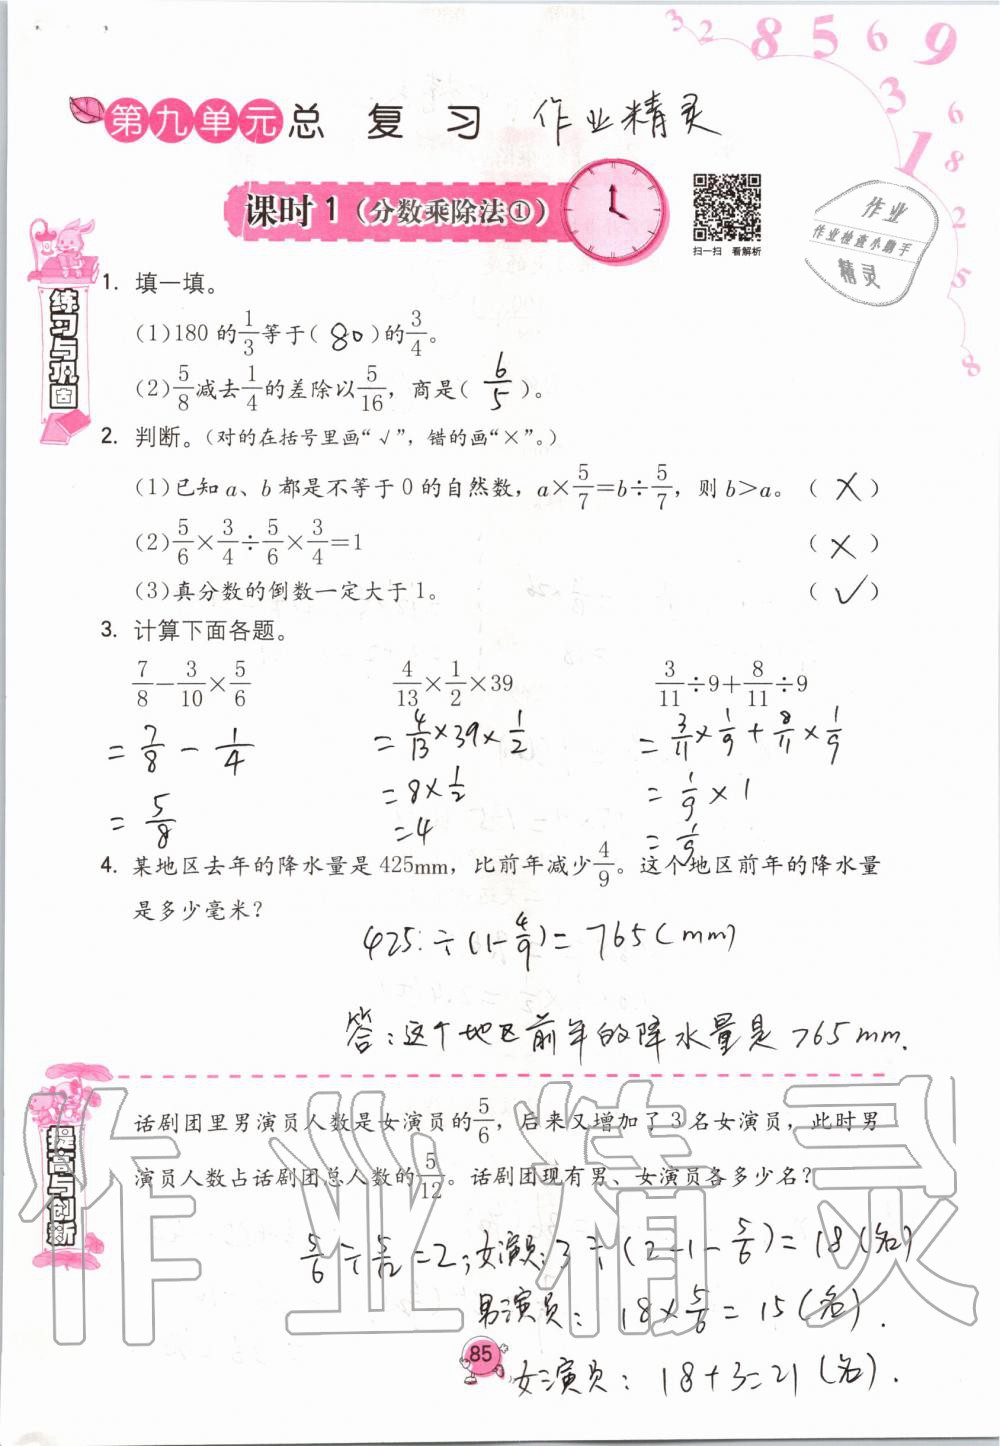 3 2 8 5 6 9
3
1
6
8
2
5
8
第九单元总 复 习 作业精灵
课时1(分数乘除法①)
扫一扫 看解析
作业
作业检查小助手
精灵
练习与巩固
1. 填一填。
(1)180的1/3等于(80)的3/4。
(2)5/8减去1/4的差除以5/16,商是(6/5)。
2. 判断。(对的在括号里画“√”,错的画“×”。)
(1)已知a、b都是不等于0的自然数,a×5/7=b÷5/7,则b>a。(×)
(2)5/6×3/4÷5/6×3/4=1 (×)
(3)真分数的倒数一定大于1。 (√)
3. 计算下面各题。
7/8-3/10×5/6 4/13×1/2×39 3/11÷9+8/11÷9
=7/8-1/4 =4/13×39×1/2 =3/11×1/9+8/11×1/9
=5/8 =8×1/2 =1/9×1
=4 =1/9
4. 某地区去年的降水量是425mm,比前年减少4/9。这个地区前年的降水量
是多少毫米?
425÷(1-4/9)=765(mm)
答:这个地区前年的降水量是765mm.
提高与创新
话剧团里男演员人数是女演员的5/6,后来又增加了3名女演员,此时男
演员人数占话剧团总人数的5/12。话剧团现有男、女演员各多少名?
5/6÷5/12=2;女演员:3÷(2-1-5/6)=18(名)
男演员:18×5/6=15(名).
女演员:18+3=21(名).
85
作业精灵